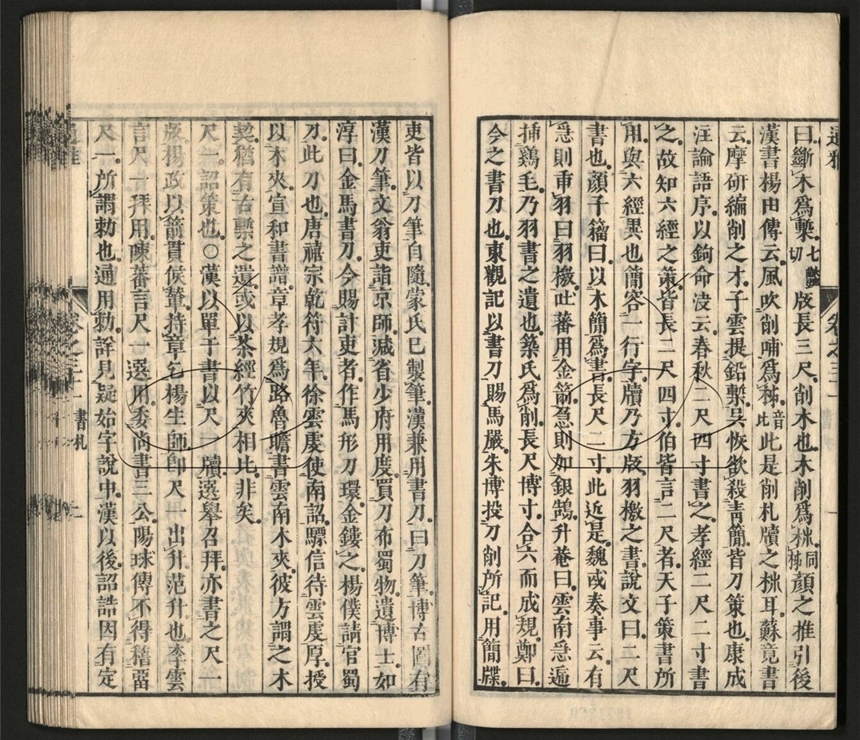 曰斷木爲槧七豔切版長三尺削木也木削爲柹同柿顏之推引後
漢書楊由傳云風吹削哺爲柹音肺此是削札牘之柹耳蘇竟書
云摩研編削之才子雲提鉛槧吳恢欲殺靑簡皆刀策也康成
注論語序以鉤命决云春秋二尺四寸書之孝經二尺二寸書
之故知六經之策皆長二尺四寸伯皆言二尺者天子策書所
用與六經異也簡容一行字牘乃方版羽檄之書說文曰二尺
書也顏千籀曰以木簡爲書長尺二寸此近是魏或奏事云有
急則束羽曰羽檄吐蕃用金箭急則加銀鶻升菴曰雲南急遞
插鷄毛乃羽書之遺也築氏爲削長尺博寸合六而成規鄭曰
今之書刀也東觀記以書刀賜馬嚴朱博投刀削所記用簡牒
吏皆以刀筆自隨蒙氏已製筆漢兼用書刀曰刀筆博古圖有
漢刀筆文翁吏詣京師減省少府用度買刀布蜀物遺博士如
淳曰金馬書刀今賜計吏者作馬形刀環金鏤之楊僕請官蜀
刀此刀也唐禧宗乾符六年徐雲虔使南詔驃信待雲虔厚授
以木夾宣和書譜章孝規爲路魯瞻書雲南木夾彼方謂之木
契猶有古槧之遺或以茶經竹夾相比非矣
尺一詔策也○漢以單于書以尺一牘選舉召拜亦書之尺一
版楊政以箭貫候輦持章乞楊生師卽尺一出升范升也李雲
言尺一拜用陳蕃言尺一選用委尚書三公陽球傳不得稽畱
尺一所謂勅也通用勅詳見疑始字說中漢以後詔誥因有定
通雅
卷之三十一
書札
二